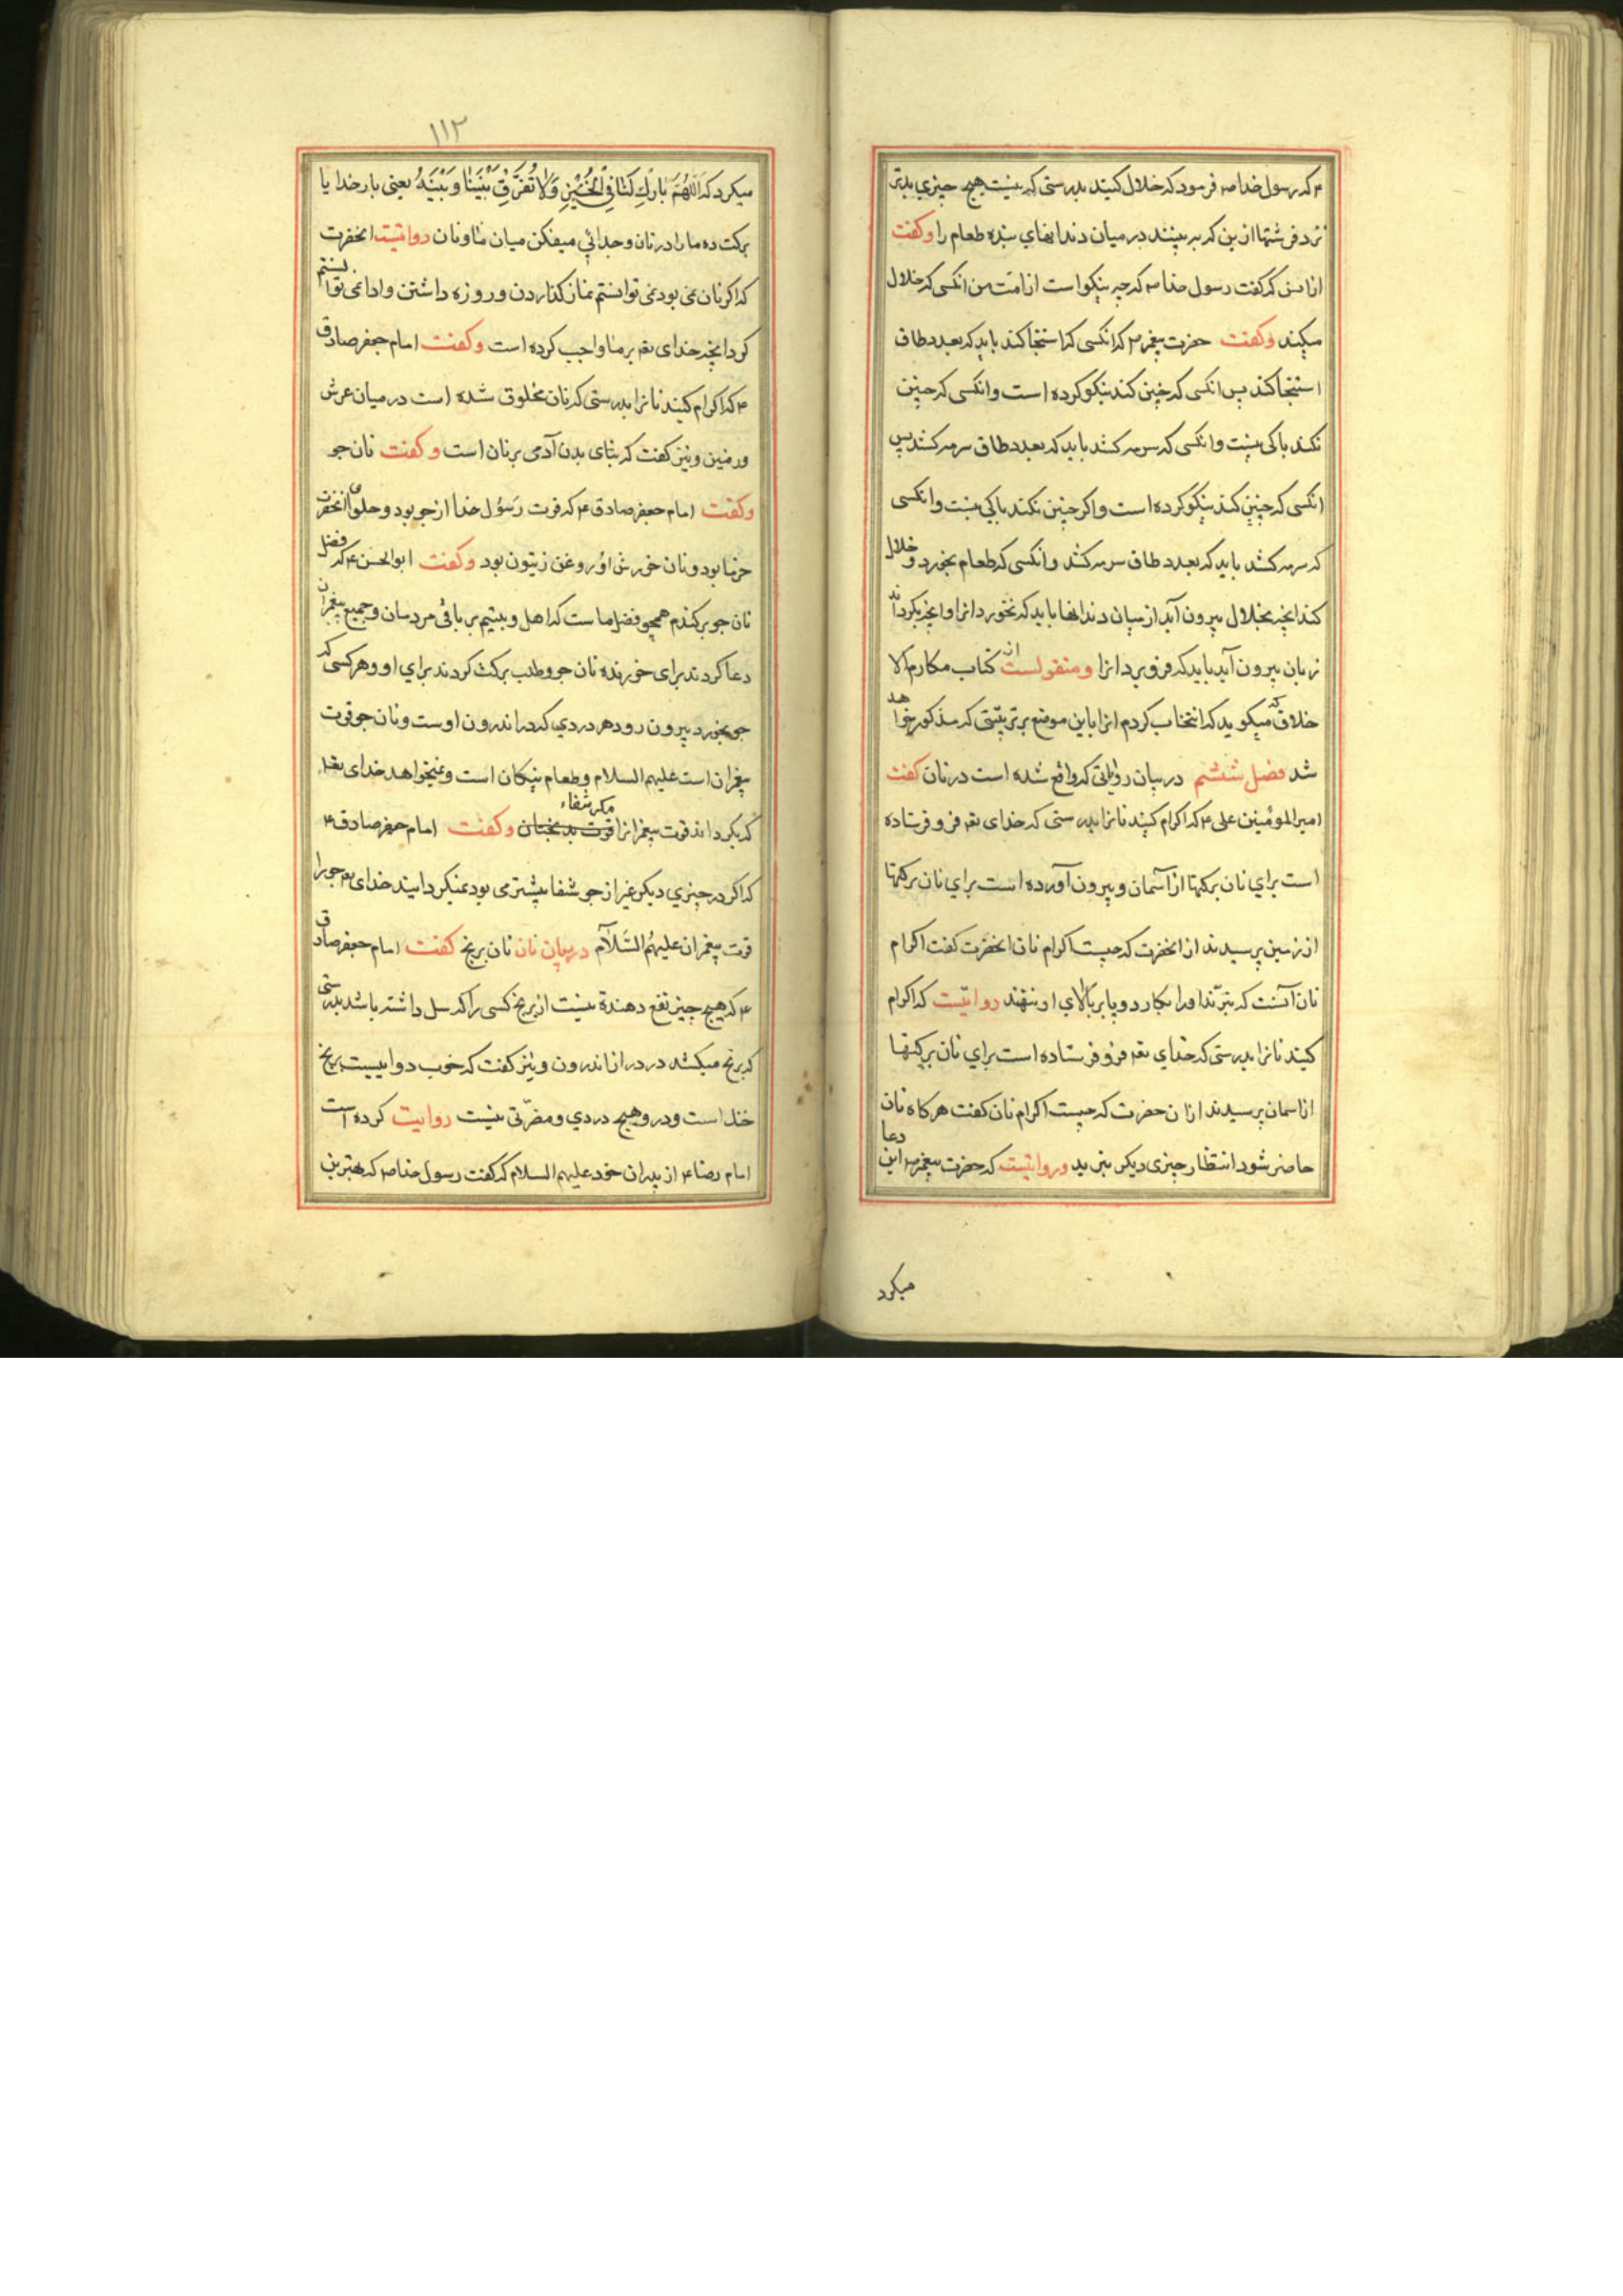 ع که رسول خدا صه فرمود که خلال کنید بدرستی که نیست هیچ چیزی بدتر
نزد فرشتها ازین که به بینند در میان دندانهای بنده طعام را وکفت
از انس که کفت رسول خدا صه که چه نیکواست از امت من انکسی که خلال
میکند وکفت حضرت پیغمبر ص که انکسی که استنجا کند باید که بعدد طاق
استنجا کند پس انکسی که چنین کند نیکو کرده است وانکسی که چنین
نکند باکی نیست وانکسی که سرمه کشد باید که بعدد طاق سرمه کشد پس
انکسی که چنین کند نیکو کرده است واکر چنین نکند باکی نیست وانکسی
که سرمه کشد باید که بعدد طاق سرمه کشد وانکسی که طعام بخورد وخلال
کند انچه بخلال بیرون آید از میان دندانها باید که نخورد انرا وانچه بکرداند
زبان بیرون آید باید که فرو برد انرا ومنقولست از کتاب مکارم الا
خلاق که میکوید که انتخاب کردم انرا باین موضع بر ترتیبی که مذکور خواهد
شد فصل ششم در بیان روایاتی که واقع شده است در نان کفت
امیرالمؤمنین علی ع که اکرام کنید نانرا بدرستی که خدای تعه فرو فرستاده
است برای نان برکتها از آسمان وبیرون آورده است برای نان برکتها
از زمین پرسیدند از انحضرت که چیست اکرام نان انحضرت کفت اکرام
نان آنست که نبرّند اورا بکارد وپا بر بالای او ننهند روایتست که اکرام
کنید نانرا بدرستی که خدای تعه فرو فرستاده است برای نان برکتها
از اسمان پرسیدند از ان حضرت که چیست اکرام نان کفت هرکاه نان
حاضر شود انتظار چیزی دیکر نبرید وروایتست که حضرت پیغمبر ص این دعا
میکرد
۱۱۲
میکرد که اَللّٰهُمَّ بَارِكْ لَنَا فِي الْخُبْزِ وَلَا تُفَرِّقْ بَيْنَنَا وَبَيْنَهُ یعنی بار خدایا
برکت ده مارا در نان وجدائی میفکن میان ما ونان روایتست انحضرت
که اکر نان نمی بود نمی توانستم نماز کذاردن وروزه داشتن وادا نمی توانستم
کرد انچه خدای تعه بر ما واجب کرده است وکفت امام جعفر صادق
ع که اکرام کنید نانرا بدرستی که نان مخلوق شده است در میان عرش
وزمین ونیز کفت که بنای بدن آدمی بر نان است وکفت نان جو
وکفت امام جعفر صادق ع که قوت رَسُول خدا از جو بود وحلوای انحضرت
خرما بود ونان خورش اُو روغن زیتون بود وکفت ابوالحسن ع که فضل
نان جو بر کندم همچو فضل ماست که اهل وبیتیم بر باقی مردمان وجمیع پیغمبران
دعا کردند برای خورنده نان جو وطلب برکت کردند برای او وهر کسی که
جو بخورد بیرون رود هر دردی که در اندرون اوست ونان جو قوت
پیغمبران است علیهم السلام وطعام نیکان است ونمیخواهد خدای تعه
که بکرداند قوت پیغمبرانرا قوت بدبختان مکر شفاء وکفت امام جعفر صادق ع
که اکر در چیزی دیکر غیر از جو شفا بیشتر می بود نمیکردانید خدای تعه جو را
قوت پیغمبران علیهمُ السَّلام در بیان نان نان برنج کفت امام جعفر صادق
ع که هیچ چیز نفع دهنده نیست از برنج کسی را که سل داشته باشد بدرستی
که برنج میکشد درد را از اندرون ونیز کفت که خوب دواییست برنج
خنک است ودرو هیچ دردی ومضرّتی نیست روایت کرده است
امام رضا ع از پدران خود علیهم السلام که کفت رسول خدا صه که بهترین